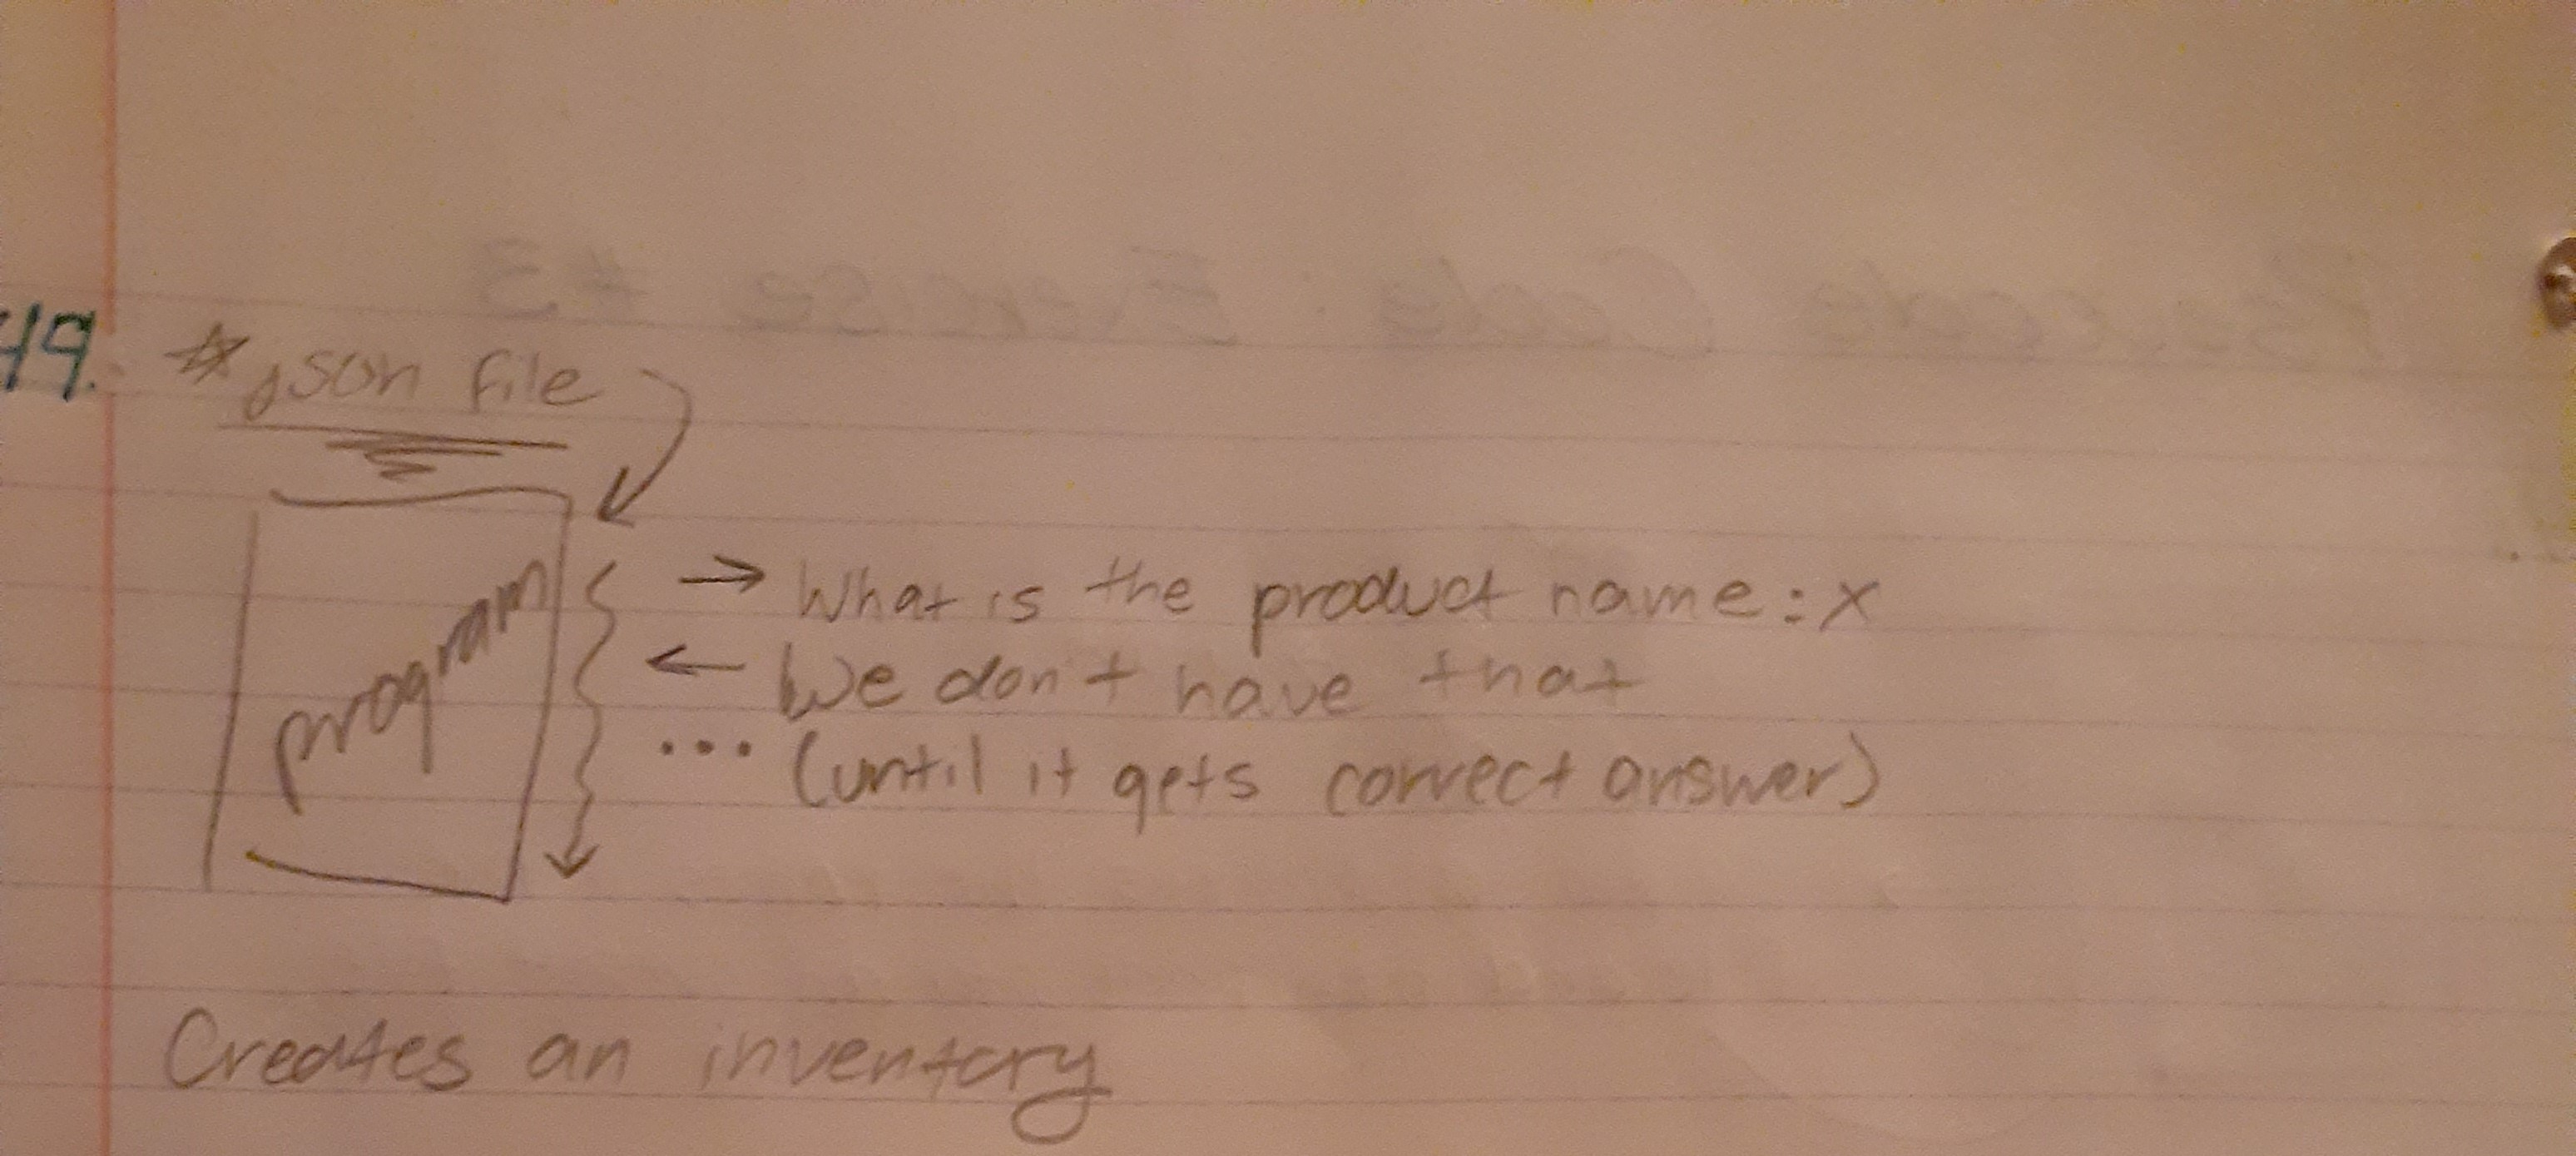 49.
☆ json file
program
→ What is the product name: x
← We don't have that
... (until it gets correct answer)
Creates an inventory